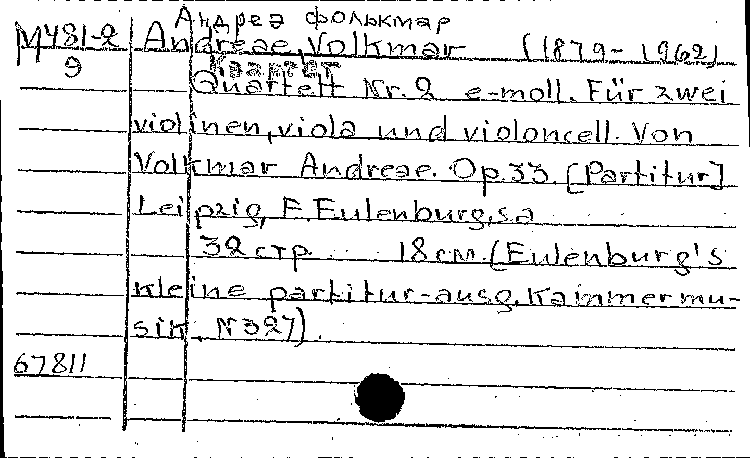 Андреэ Фолькмар
М481-2 Andreae, Volkmar (1879-1962)
Э Квартет
Quartett Nr. 2 e-moll. Für zwei
violinen, viola und violoncell. Von
Volkmar Andreae. Op. 33. [Partitur]
Leipzig, E. Eulenburg, s.a
32 стр. 18 см. (Eulenburg's
kleine partitur-ausg. Kammermu-
sik. N 327).
67811